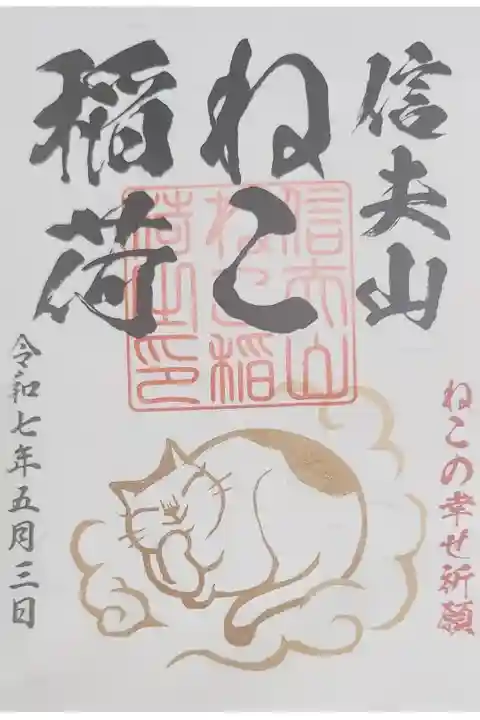 信夫山
ねこ
稲荷
信夫山
ねこ稲
荷山印
ねこの幸せ祈願
令和七年五月三日